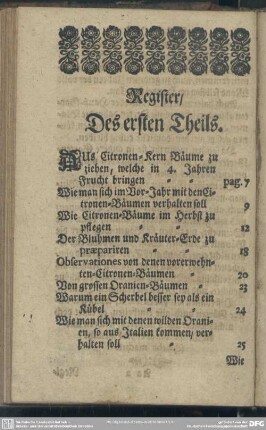 Register/
Des ersten Theils.
AUs Citronen-Kern Bäume zu
ziehen, welche in 4. Jahren
Frucht bringen pag. 7
Wie man sich im Vor-Jahr mit den Ci-
tronen-Bäumen verhalten soll 9
Wie Citronen-Bäume im Herbst zu
pflegen 12
Der Bluhmen und Kräuter-Erde zu
præpariren 18
Observationes von denen vorerwehn-
ten-Citronen-Bäumen 20
Von grossen Oranien-Bäumen 23
Warum ein Scherbel besser sey als ein
Kübel 24
Wie man sich mit denen wilden Orani-
en, so aus Italien kommen, ver-
halten soll 25
Wie
DFG